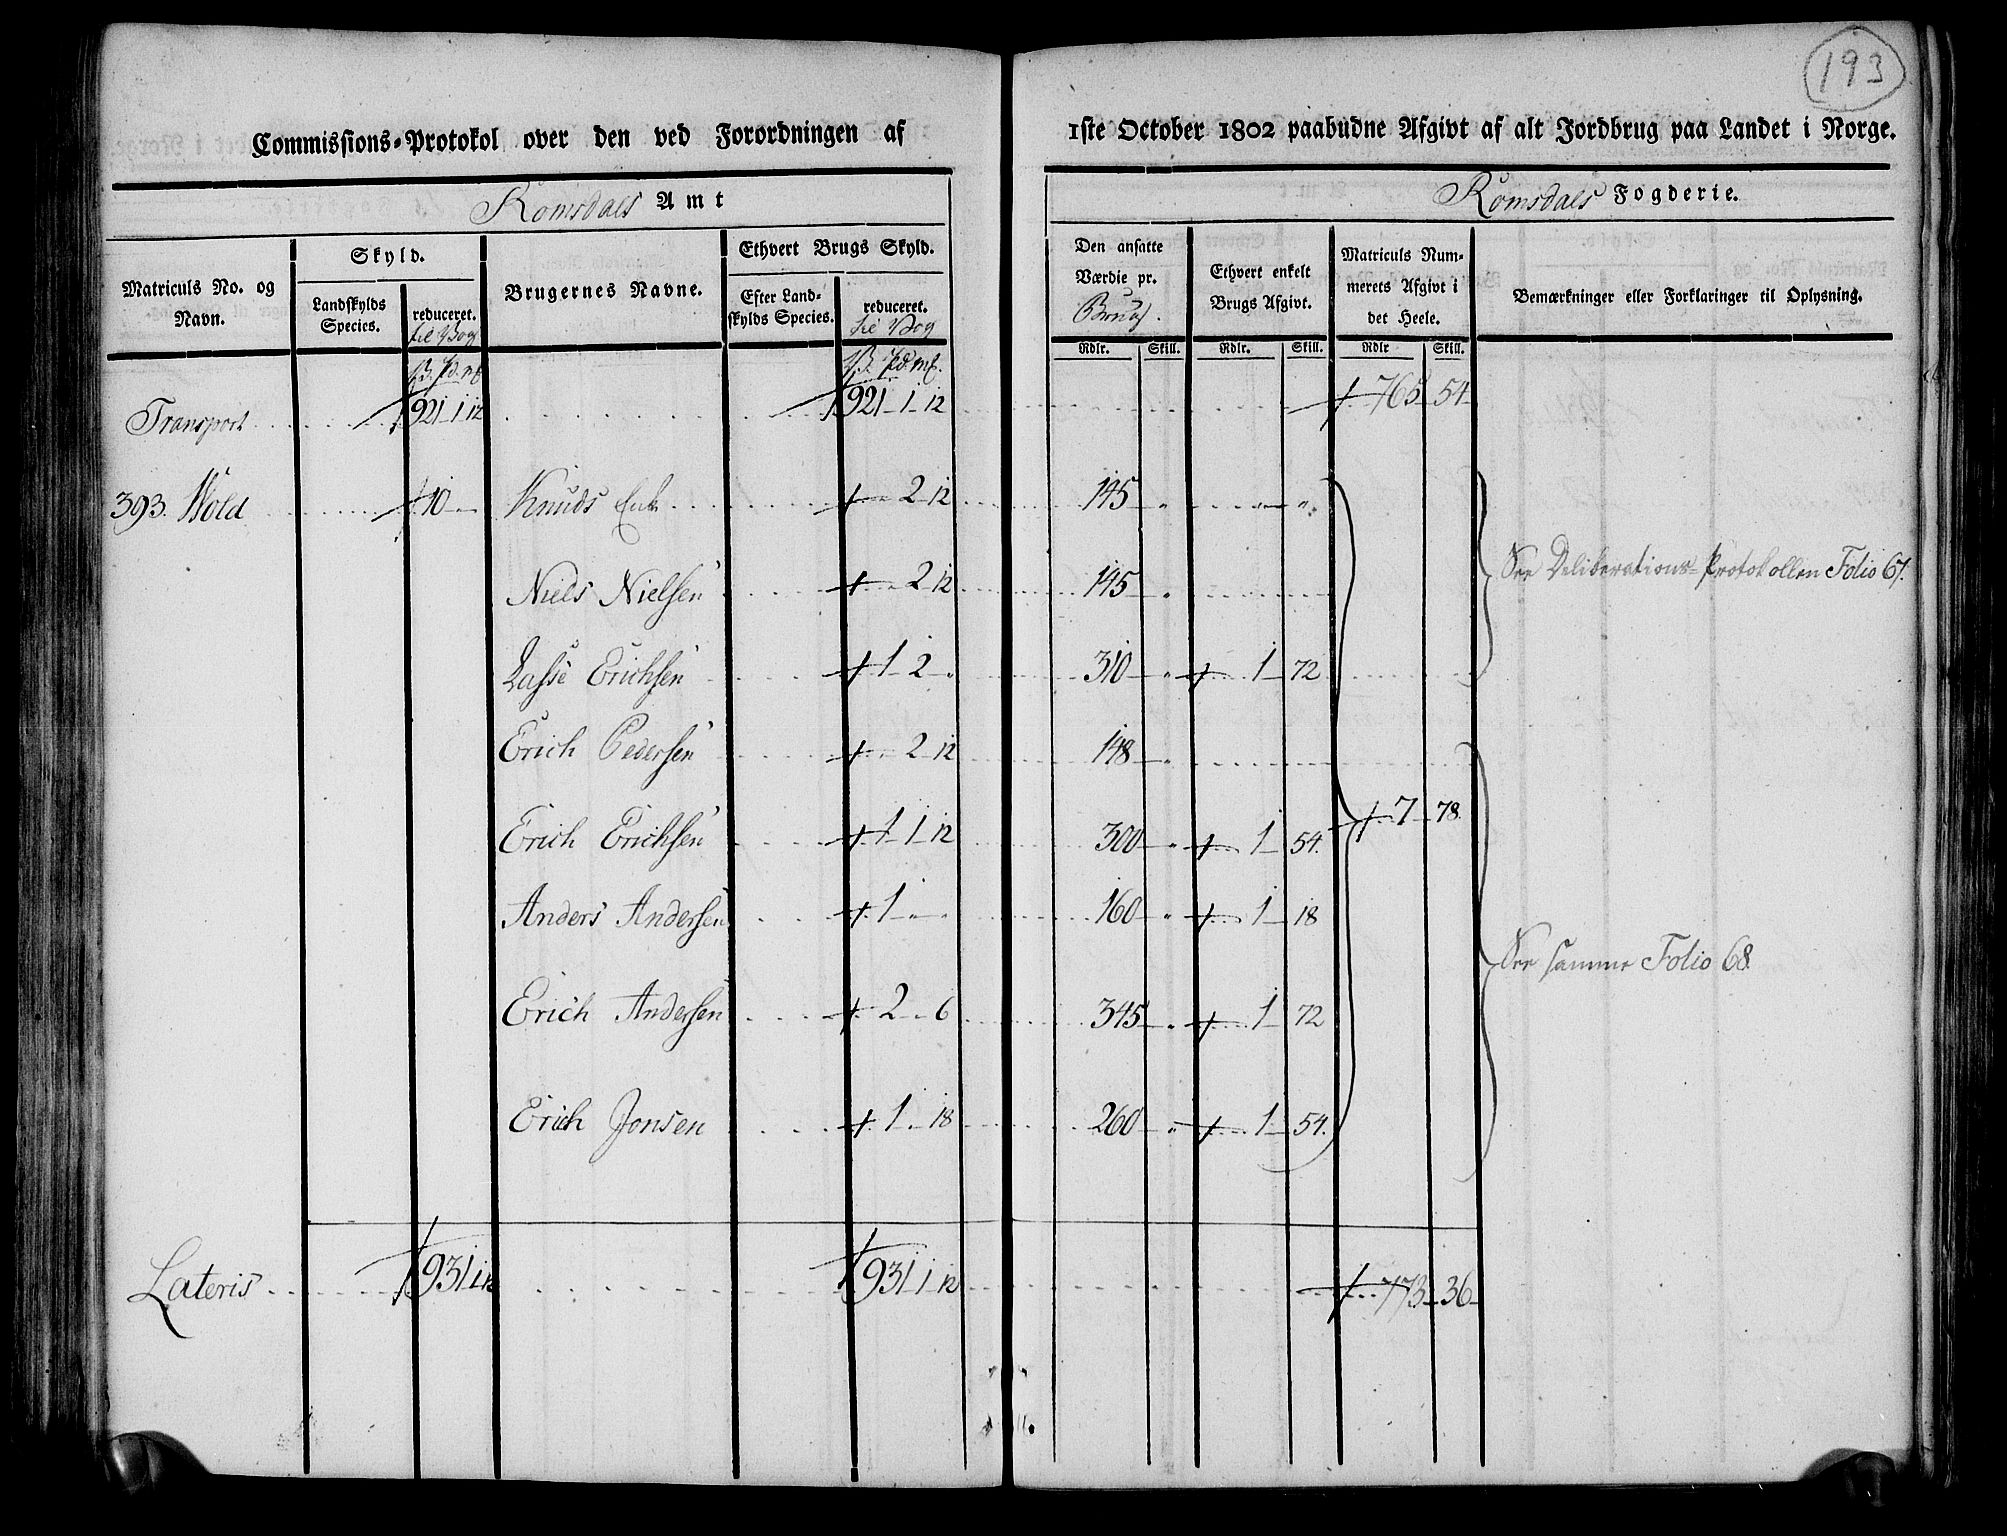 193
Commissions-Protokol over den ved Forordningen af 1ste October 1802 paabudne Afgivt af alt Jordbrug paa Landet i Norge.
Romsdals Amt
Romsdals Fogderie.
Matriculs No. og Navn.
Skyld.
Landskylds Species.
reduceret. til Vog
Brugernes Navne.
Ethvert Brugs Skyld.
Efter Landskylds Species.
reduceret. til Vog
Den ansatte Værdie pr. Brug.
Ethvert enkelt Brugs Afgivt.
Matriculs Nummerets Afgivt i det Heele.
Bemærkninger eller Forklaringer til Oplysning.
Rdlr. Skill. Rdlr. Skill. Rdlr Skill.
Transport 921 1 12 921 1 12 765 54
393. Wold 10 Knuds Enke 2 12 145
Niels Nielsen 2 12 145
See Deliberations-Protokollen Folio 67.
Lasse Erichsen 1 2 310 1 72
Erich Pedersen 2 12 148
Erich Erichsen 1 1 12 300 1 54. 7 78
Anders Andersen 1 160 1 18
See samme Folio 68.
Erich Andersen 2 6 345 1 72
Erich Jonsen 1 18 260 1 54.
Lateris 931 1 12 931 1 12 773 36